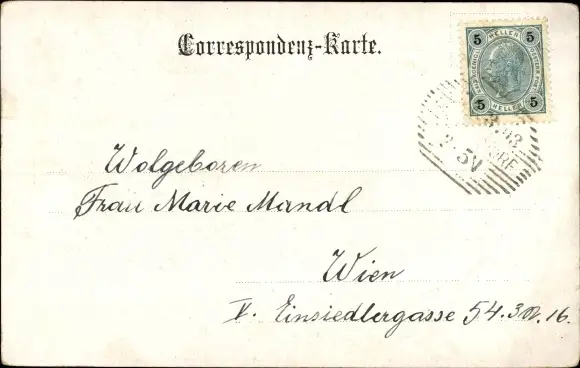 Correspondenz-Karte.
5 HELLER 5
5 HELLER 5
5V
Wolgeboren
Frau Marie Mandl
Wien
V. Einsiedlergasse 54.3
16.